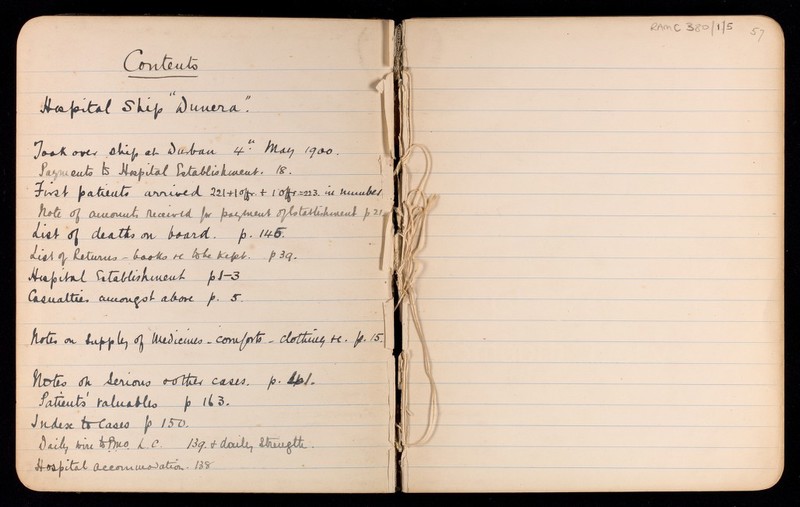 Contents
Hospital Ship "Dunera".
Took over ship at Durban 4th May 1900.
Payments to Hospital Establishment. 18.
First patients arrived 221+1 offr. + 1 offr = 223. in number
Note of amounts received for payment of Establishment p 21
List of deaths on board. p. 145.
List of Returns - books &c to be kept. p 39.
Hospital Establishment p 1-3
Casualties amongst above p. 5.
Notes on supply of Medicines - comforts - clothing &c. p. 15.
Notes on Serious & other cases. p.
Patients' valuables p 163.
Index to Cases p 150.
Daily wire to PMO L. C. 139. & daily Strength.
Hospital accommodation. 138
RAMC 380/1/5
57